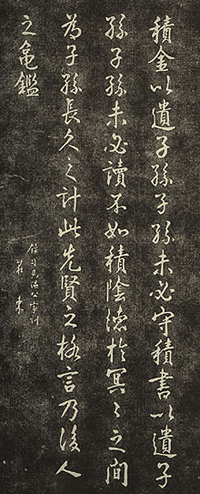 積金以遺子孫子孫未必守積書以遺子
孫子孫未必讀不如積陰德於冥々之間
為子孫長久之計此先賢之格言乃後人
之龜鑑
錄司馬溫公家訓